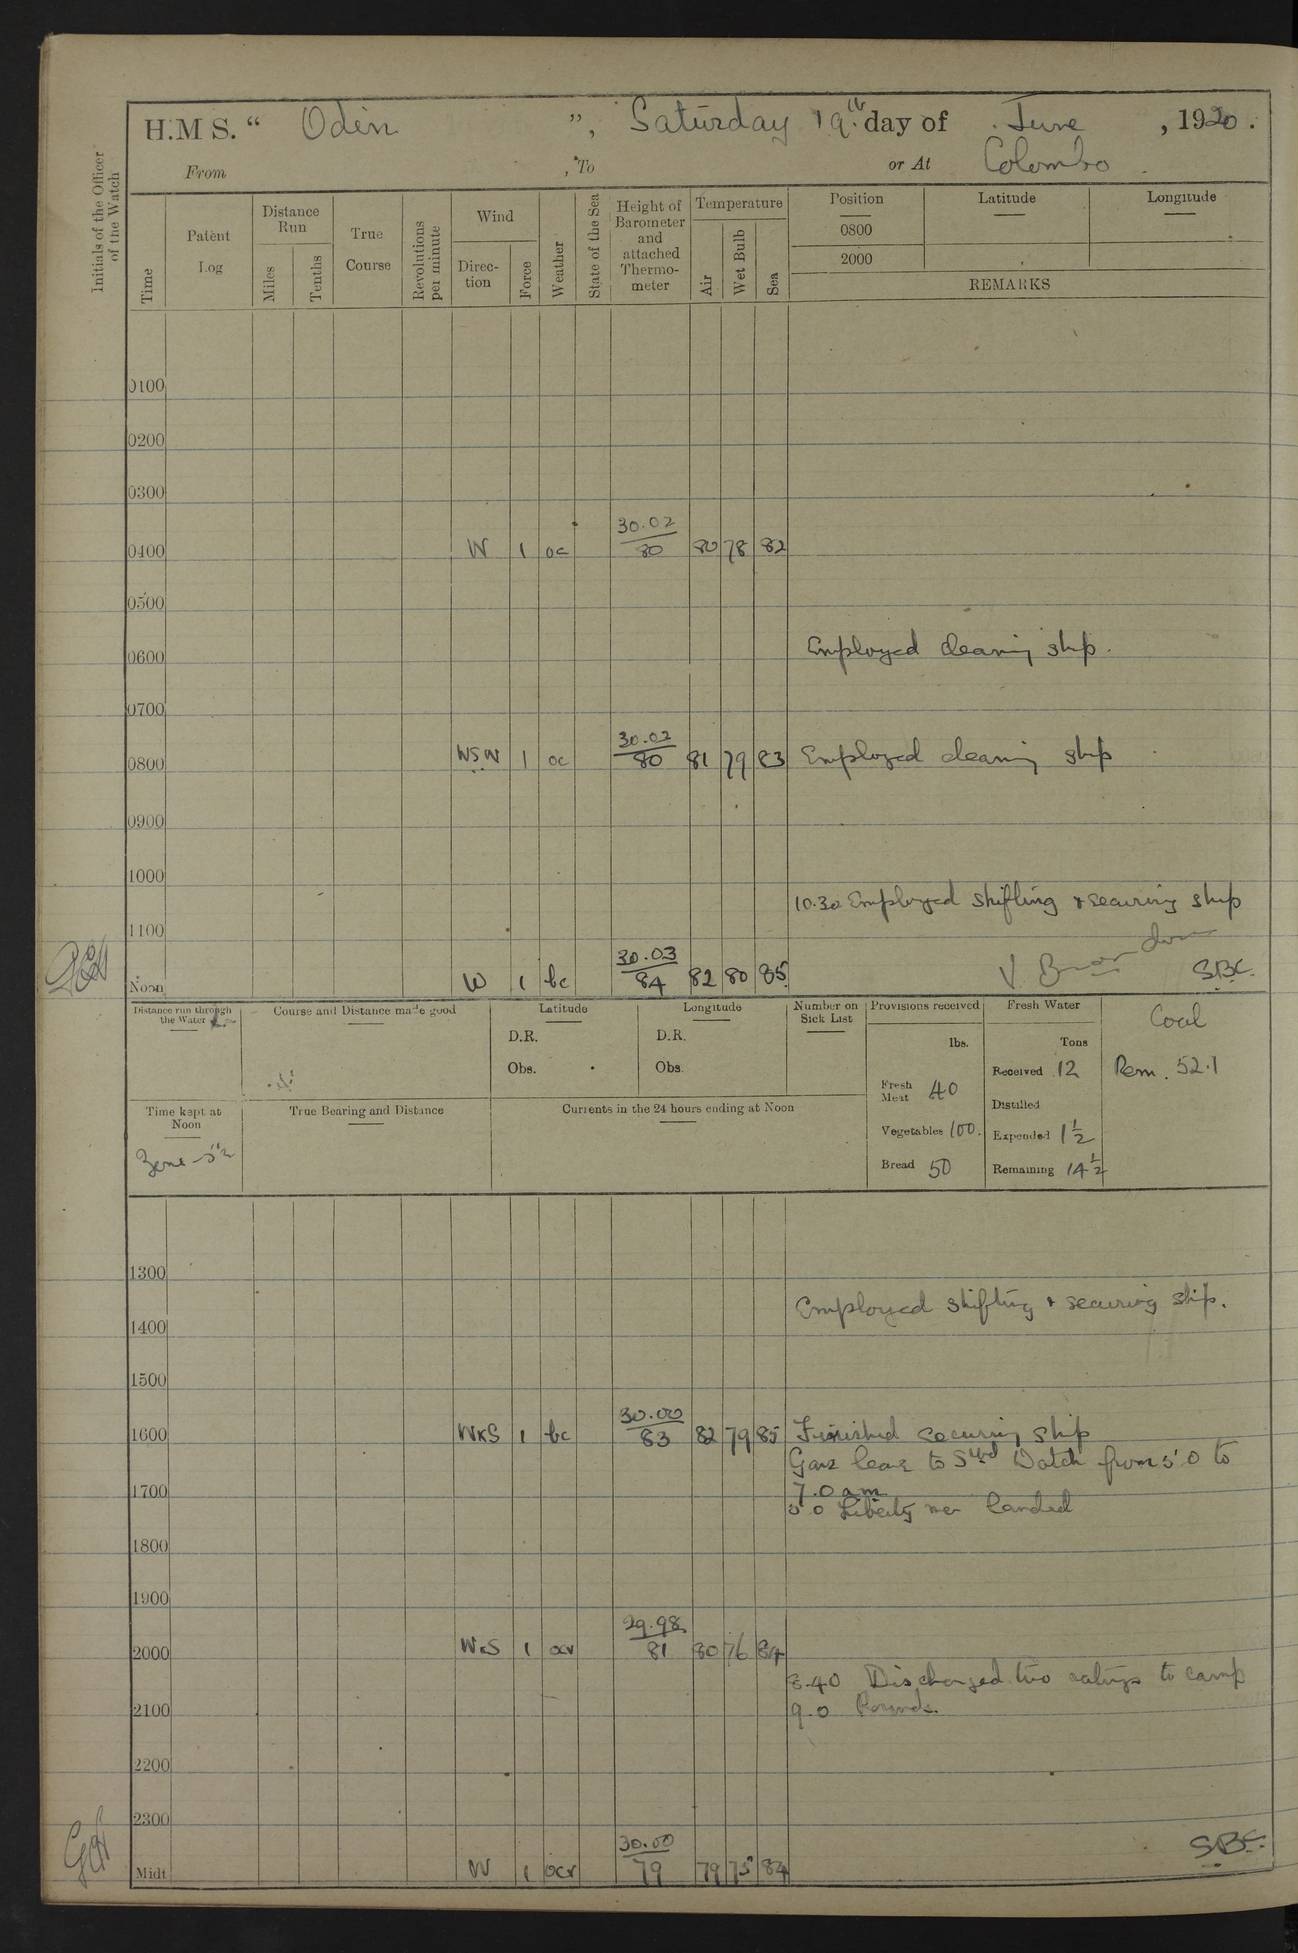 H.M S. “ Odin ”, Saturday 19th day of June , 1920 .
From , To or At Colombo
Initials of the Officer of the Watch
Time
Patent Log
Distance Run
Miles
Tenths
True Course
Revolutions per minute
Wind
Direc- tion
Force
Weather
State of the Sea
Height of Barometer and attached Thermo- meter
Temperature
Air
Wet Bulb
Sea
Position
0800
2000
Latitude
Longitude
REMARKS
0100
0200
0300
30.02
0400 W 1 oc 80 80 78 82
0500
0600 Employed cleaning ship.
0700
30.02
0800 WSW 1 oc 80 81 79 83 Employed cleaning ship
0900
1000
10.30 Employed shifting & securing ship
1100
30.03
Noon W 1 bc 84 82 80 85 SBC.
Distance run through the Water
Course and Distance made good
Latitude
D.R.
Obs.
Longitude
D.R.
Obs.
Number on Sick List
Provisions received
lbs.
Fresh Meat 40
Vegetables 100.
Bread 50
Fresh Water
Tons
Received 12
Distilled
Expended 1½
Remaining 14½
Coal
Rem. 52.1
Time kept at Noon
Zone -5½
True Bearing and Distance
Currents in the 24 hours ending at Noon
1300
Employed shifting & securing ship.
1400
1500
30.00
1600 WxS 1 bc 83 82 79 85 Finished securing ship
Gave leave to Stbd Watch from 5.0 to
7.0 am
1700
5.0 Liberty men landed
1800
1900
29.98
2000 WxS 1 ocr 81 80 76 84
8.40 Discharged two ratings to camp
9.0 Rounds.
2100
2200
2300
30.00
Midt W 1 ocr 79 79 75 84 SBC.